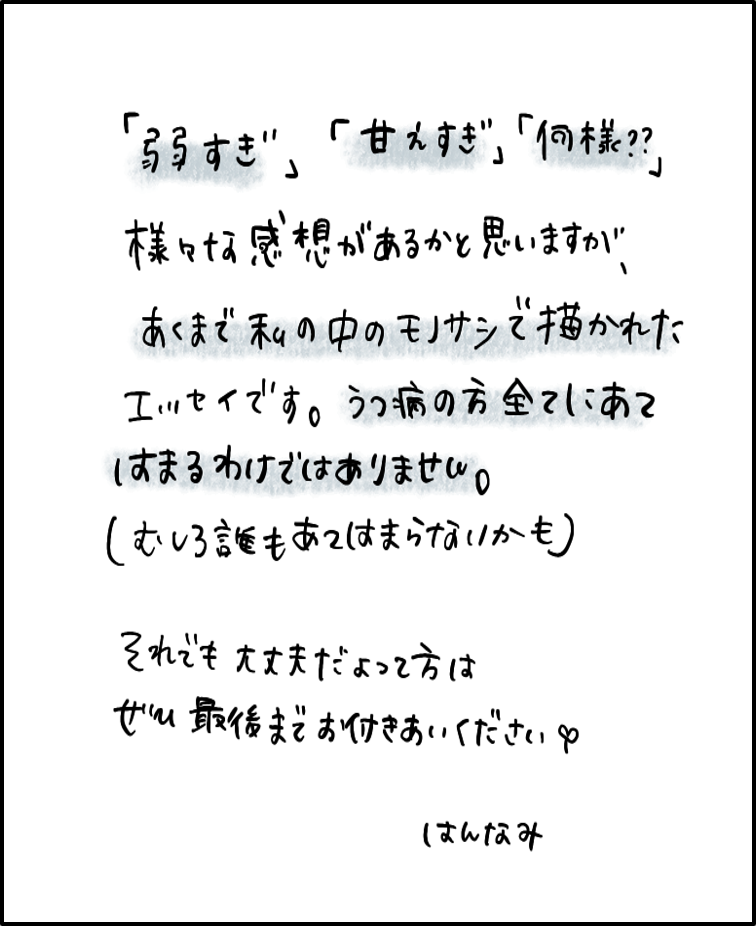 「弱すぎ」「甘えすぎ」「何様??」
様々な感想があるかと思いますが、
あくまで私の中のモノサシで描かれた
エッセイです。うつ病の方全てにあて
はまるわけではありません。
(むしろ誰もあてはまらないかも)
それでも大丈夫だよって方は
ぜひ最後までお付きあいください♡
はんなみ